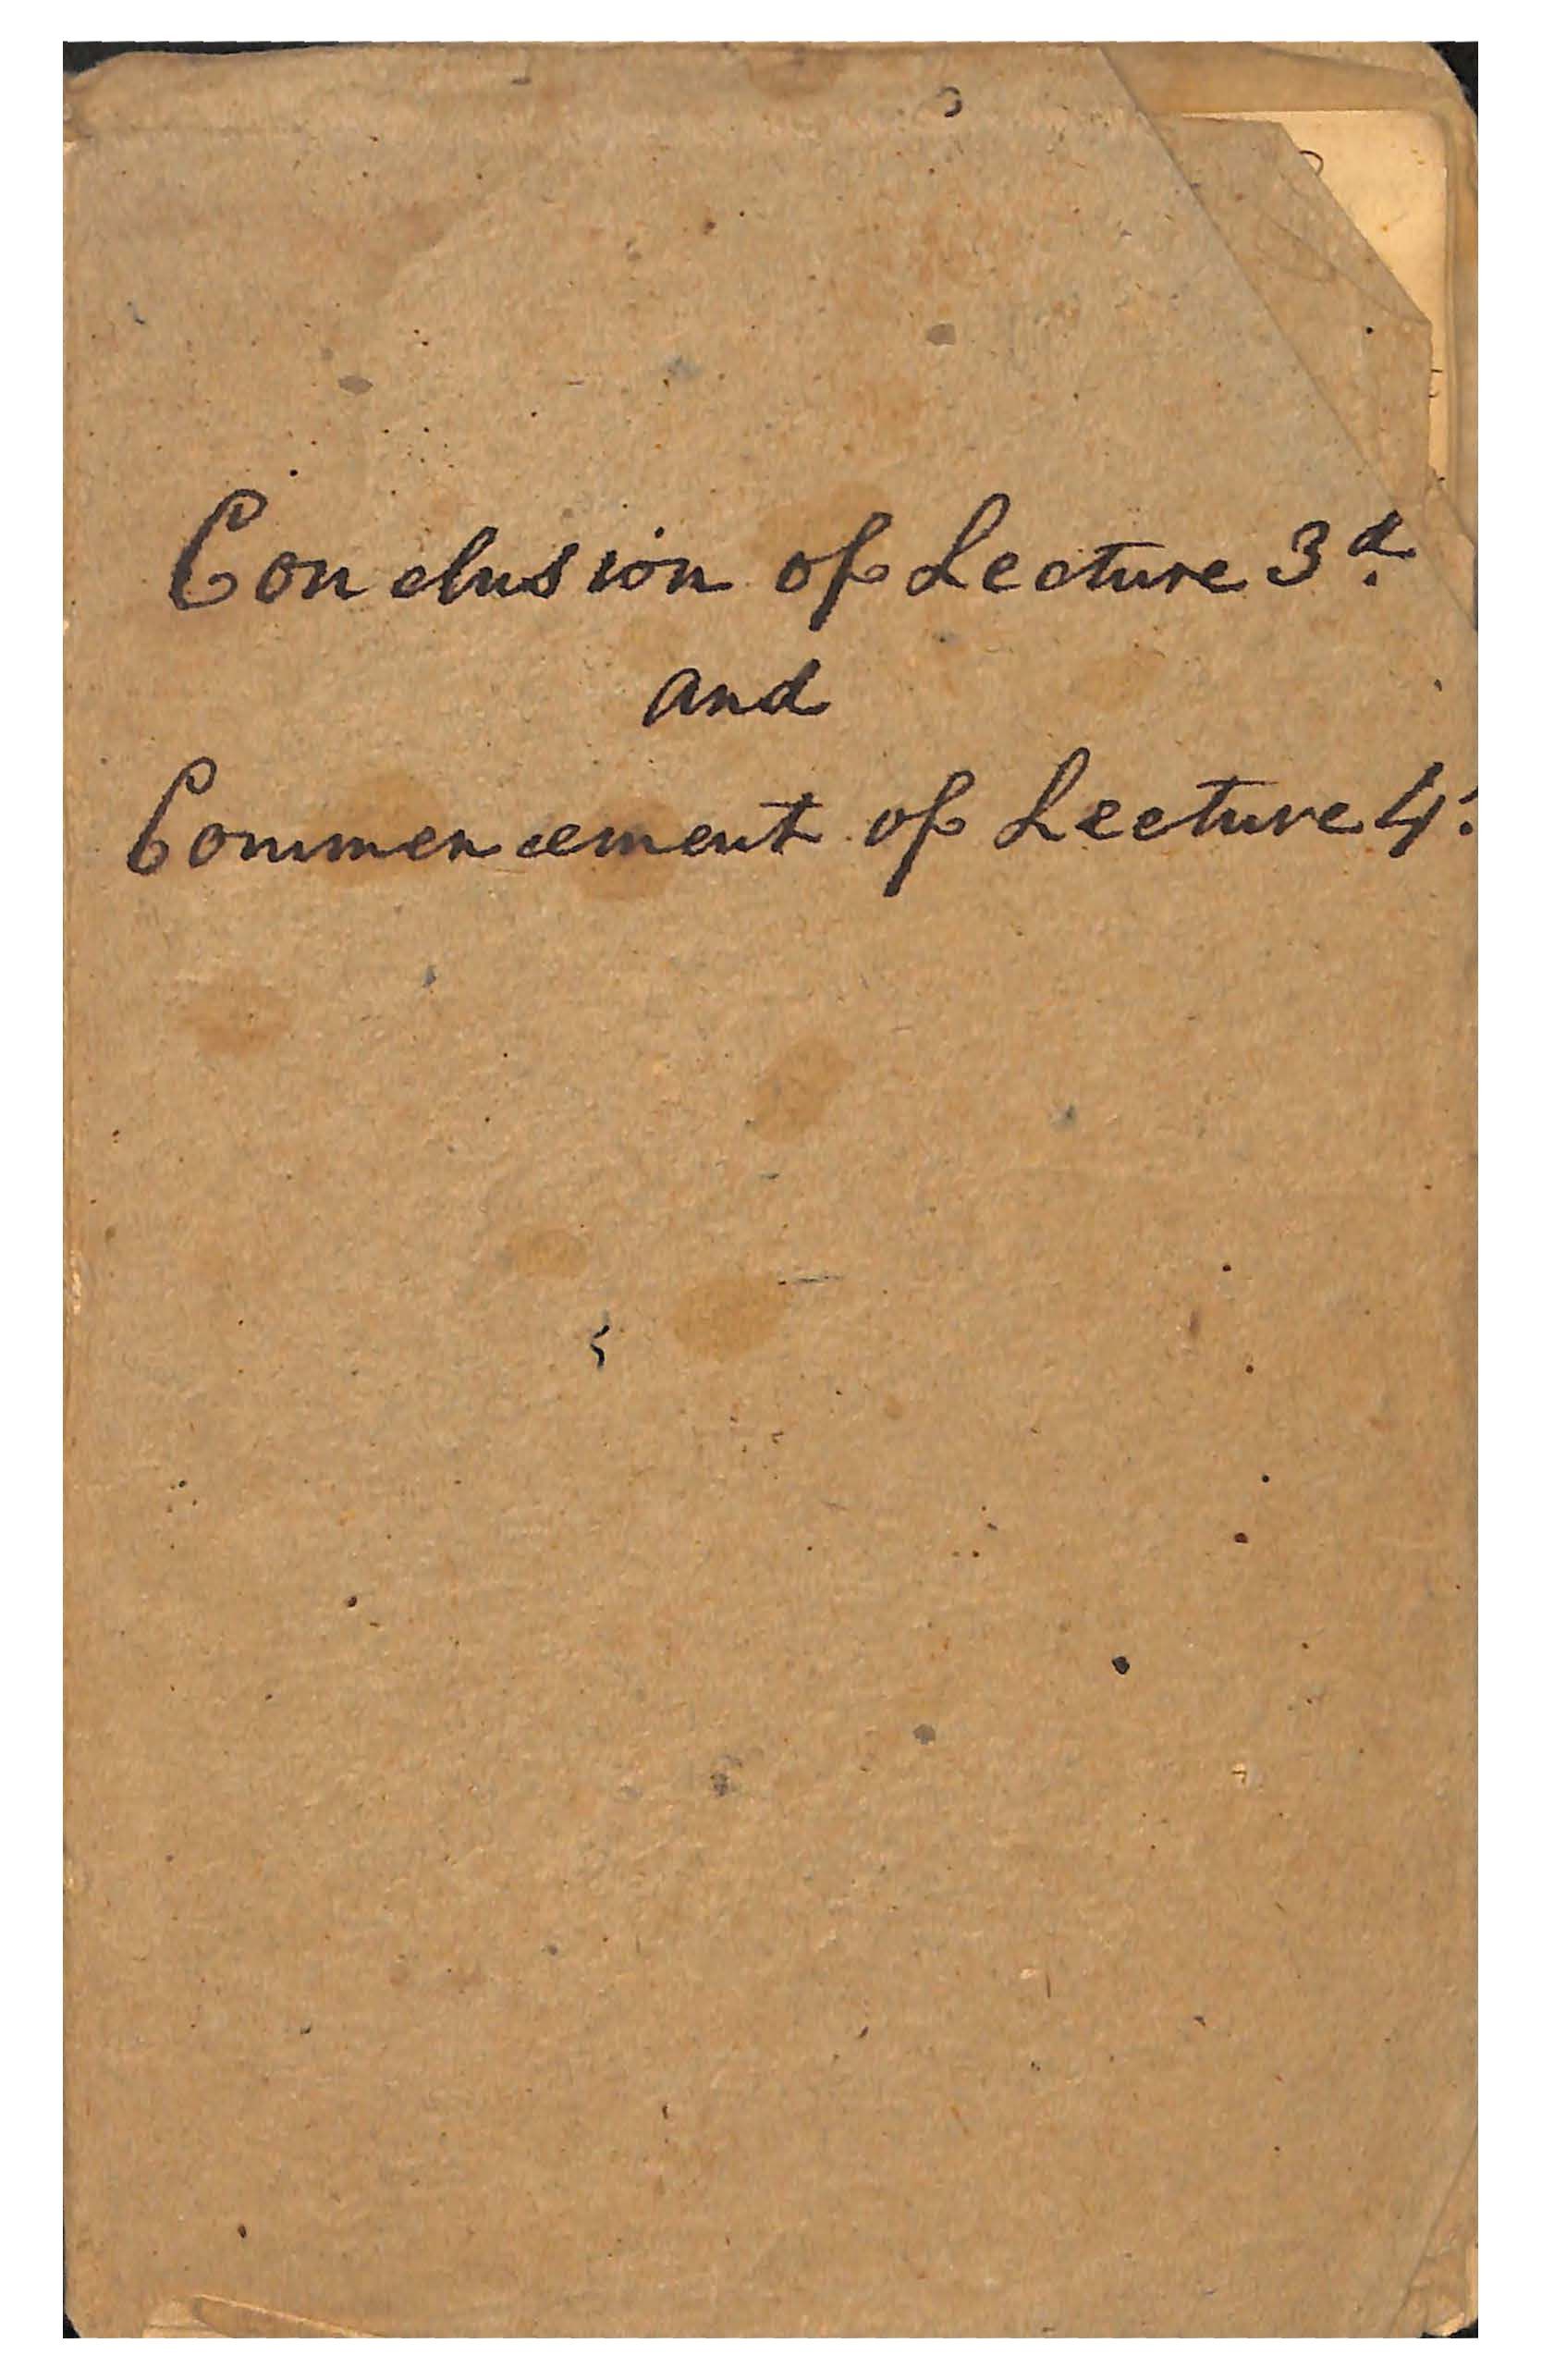 Conclusion of Lecture 3d.
and
Commencement of Lecture 4.